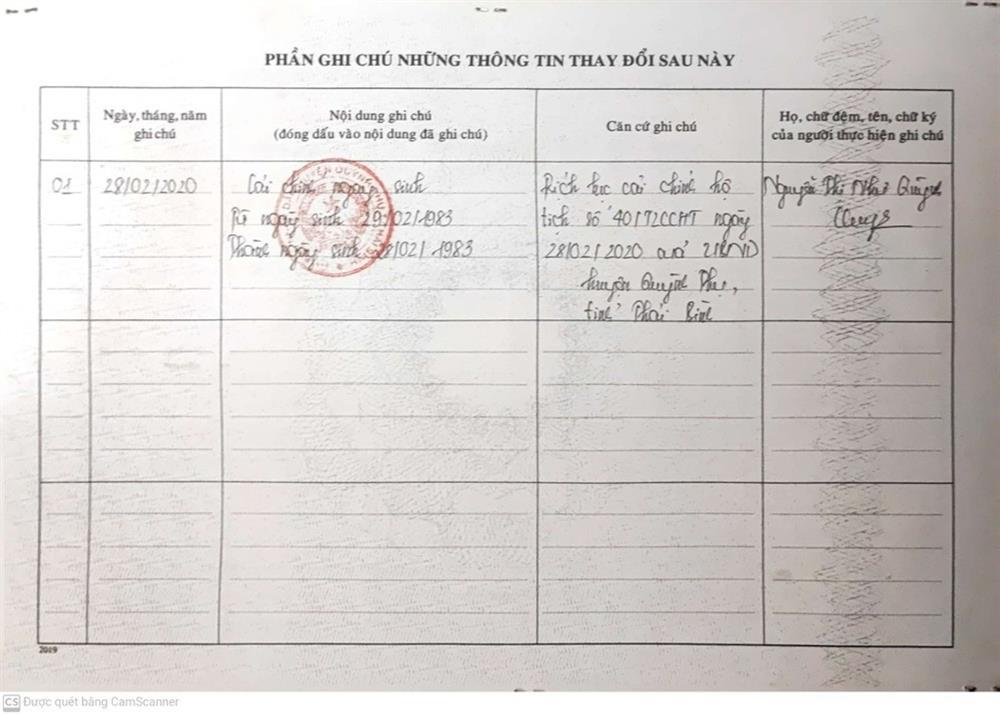 PHẦN GHI CHÚ NHỮNG THÔNG TIN THAY ĐỔI SAU NÀY
STT
Ngày, tháng, năm
ghi chú
Nội dung ghi chú
(đóng dấu vào nội dung đã ghi chú)
Căn cứ ghi chú
Họ, chữ đệm, tên, chữ ký
của người thực hiện ghi chú
01
28/02/2020
Cải chính ngày sinh
Từ ngày sinh 29/02/1983
Thành ngày sinh 28/02/1983
Trích lục cải chính hộ
tịch số 40/TLCCHT ngày
28/02/2020 của UBND
huyện Quỳnh Phụ,
tỉnh Thái Bình
Nguyễn Thị Như Quỳnh
2019
CS Được quét bằng CamScanner